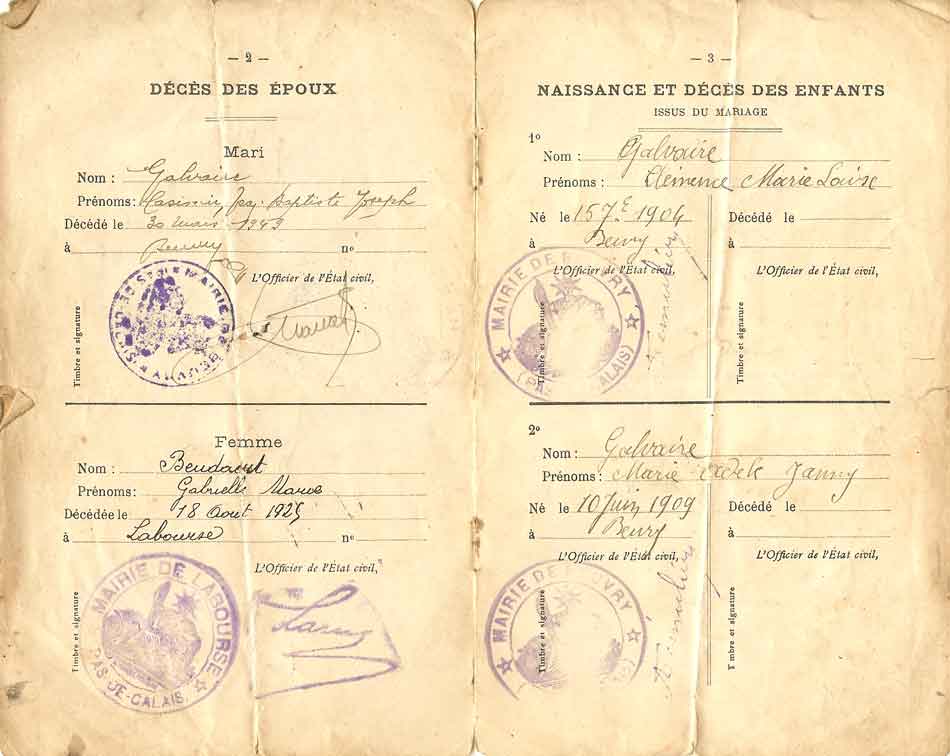 — 2 —
DÉCÈS DES ÉPOUX
Mari
Nom : Galvaire
Prénoms : Casimir, Baptiste Joseph
Décédé le 30 mars 1943
à Beuvry nº
L'Officier de l'État civil,
Timbre et signature
Femme
Nom :
Prénoms : Gabrielle
Décédée le 18 Août 1925
à Labourse nº
L'Officier de l'État civil,
MAIRIE DE LABOURSE
PAS-DE-CALAIS
Timbre et signature
— 3 —
NAISSANCE ET DÉCÈS DES ENFANTS
ISSUS DU MARIAGE
1º
Nom : Galvaire
Prénoms : Clémence Marie Louise
Né le 15 7.e 1904 Décédé le
à Beuvry à
L'Officier de l'État civil, L'Officier de l'État civil,
MAIRIE DE BEUVRY
(PAS-DE-CALAIS)
Timbre et signature
Timbre et signature
2º
Nom : Galvaire
Prénoms : Marie Adèle Janny
Né le 10 Juin 1909 Décédé le
à Beuvry à
L'Officier de l'État civil, L'Officier de l'État civil,
MAIRIE DE BEUVRY
Timbre et signature
Timbre et signature